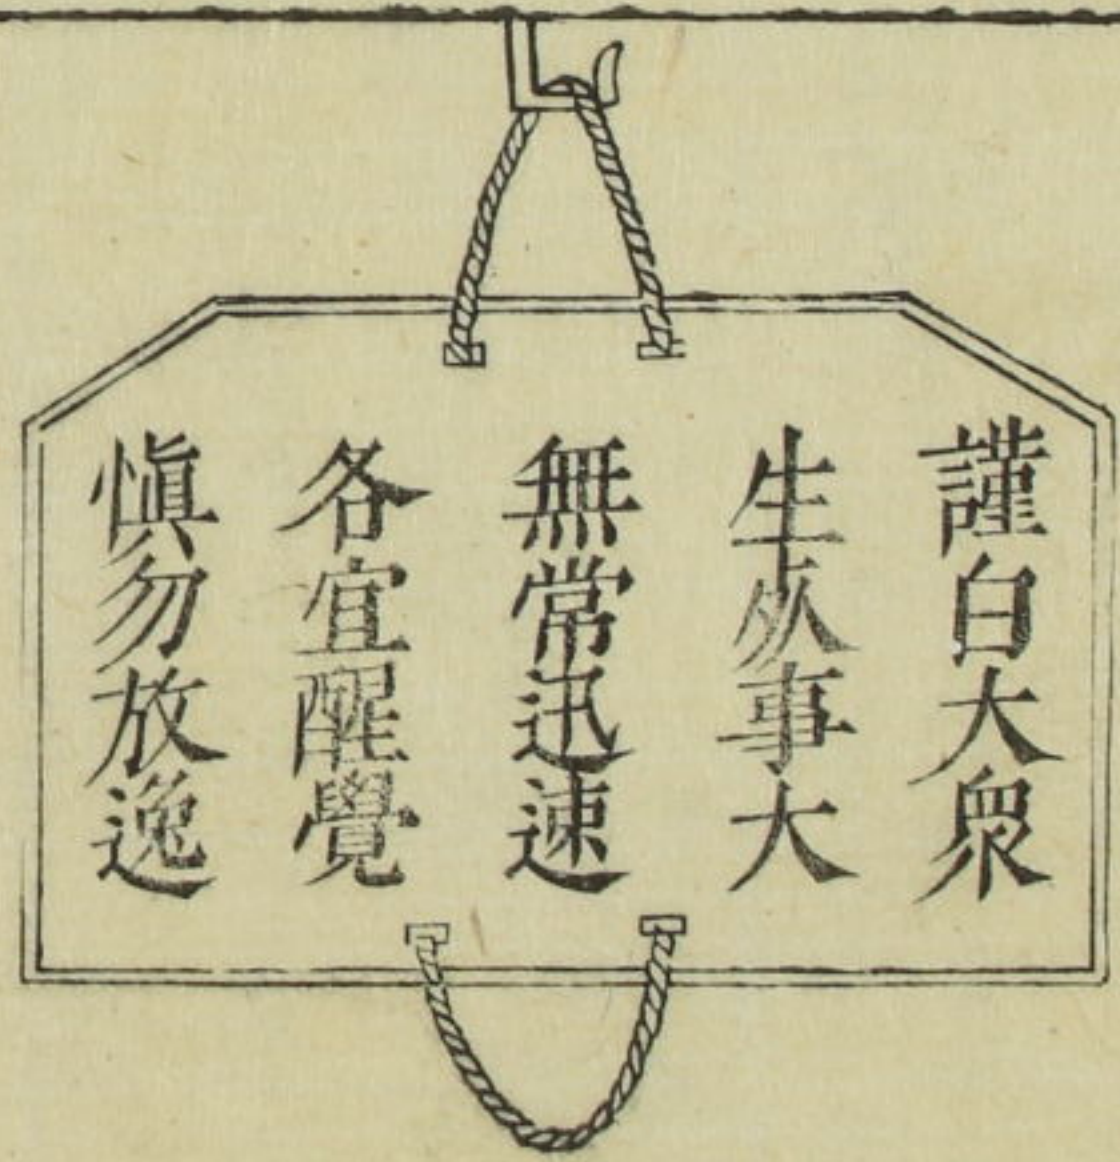 謹白大眾
生死事大
無常迅速
各宜醒覺
慎勿放逸